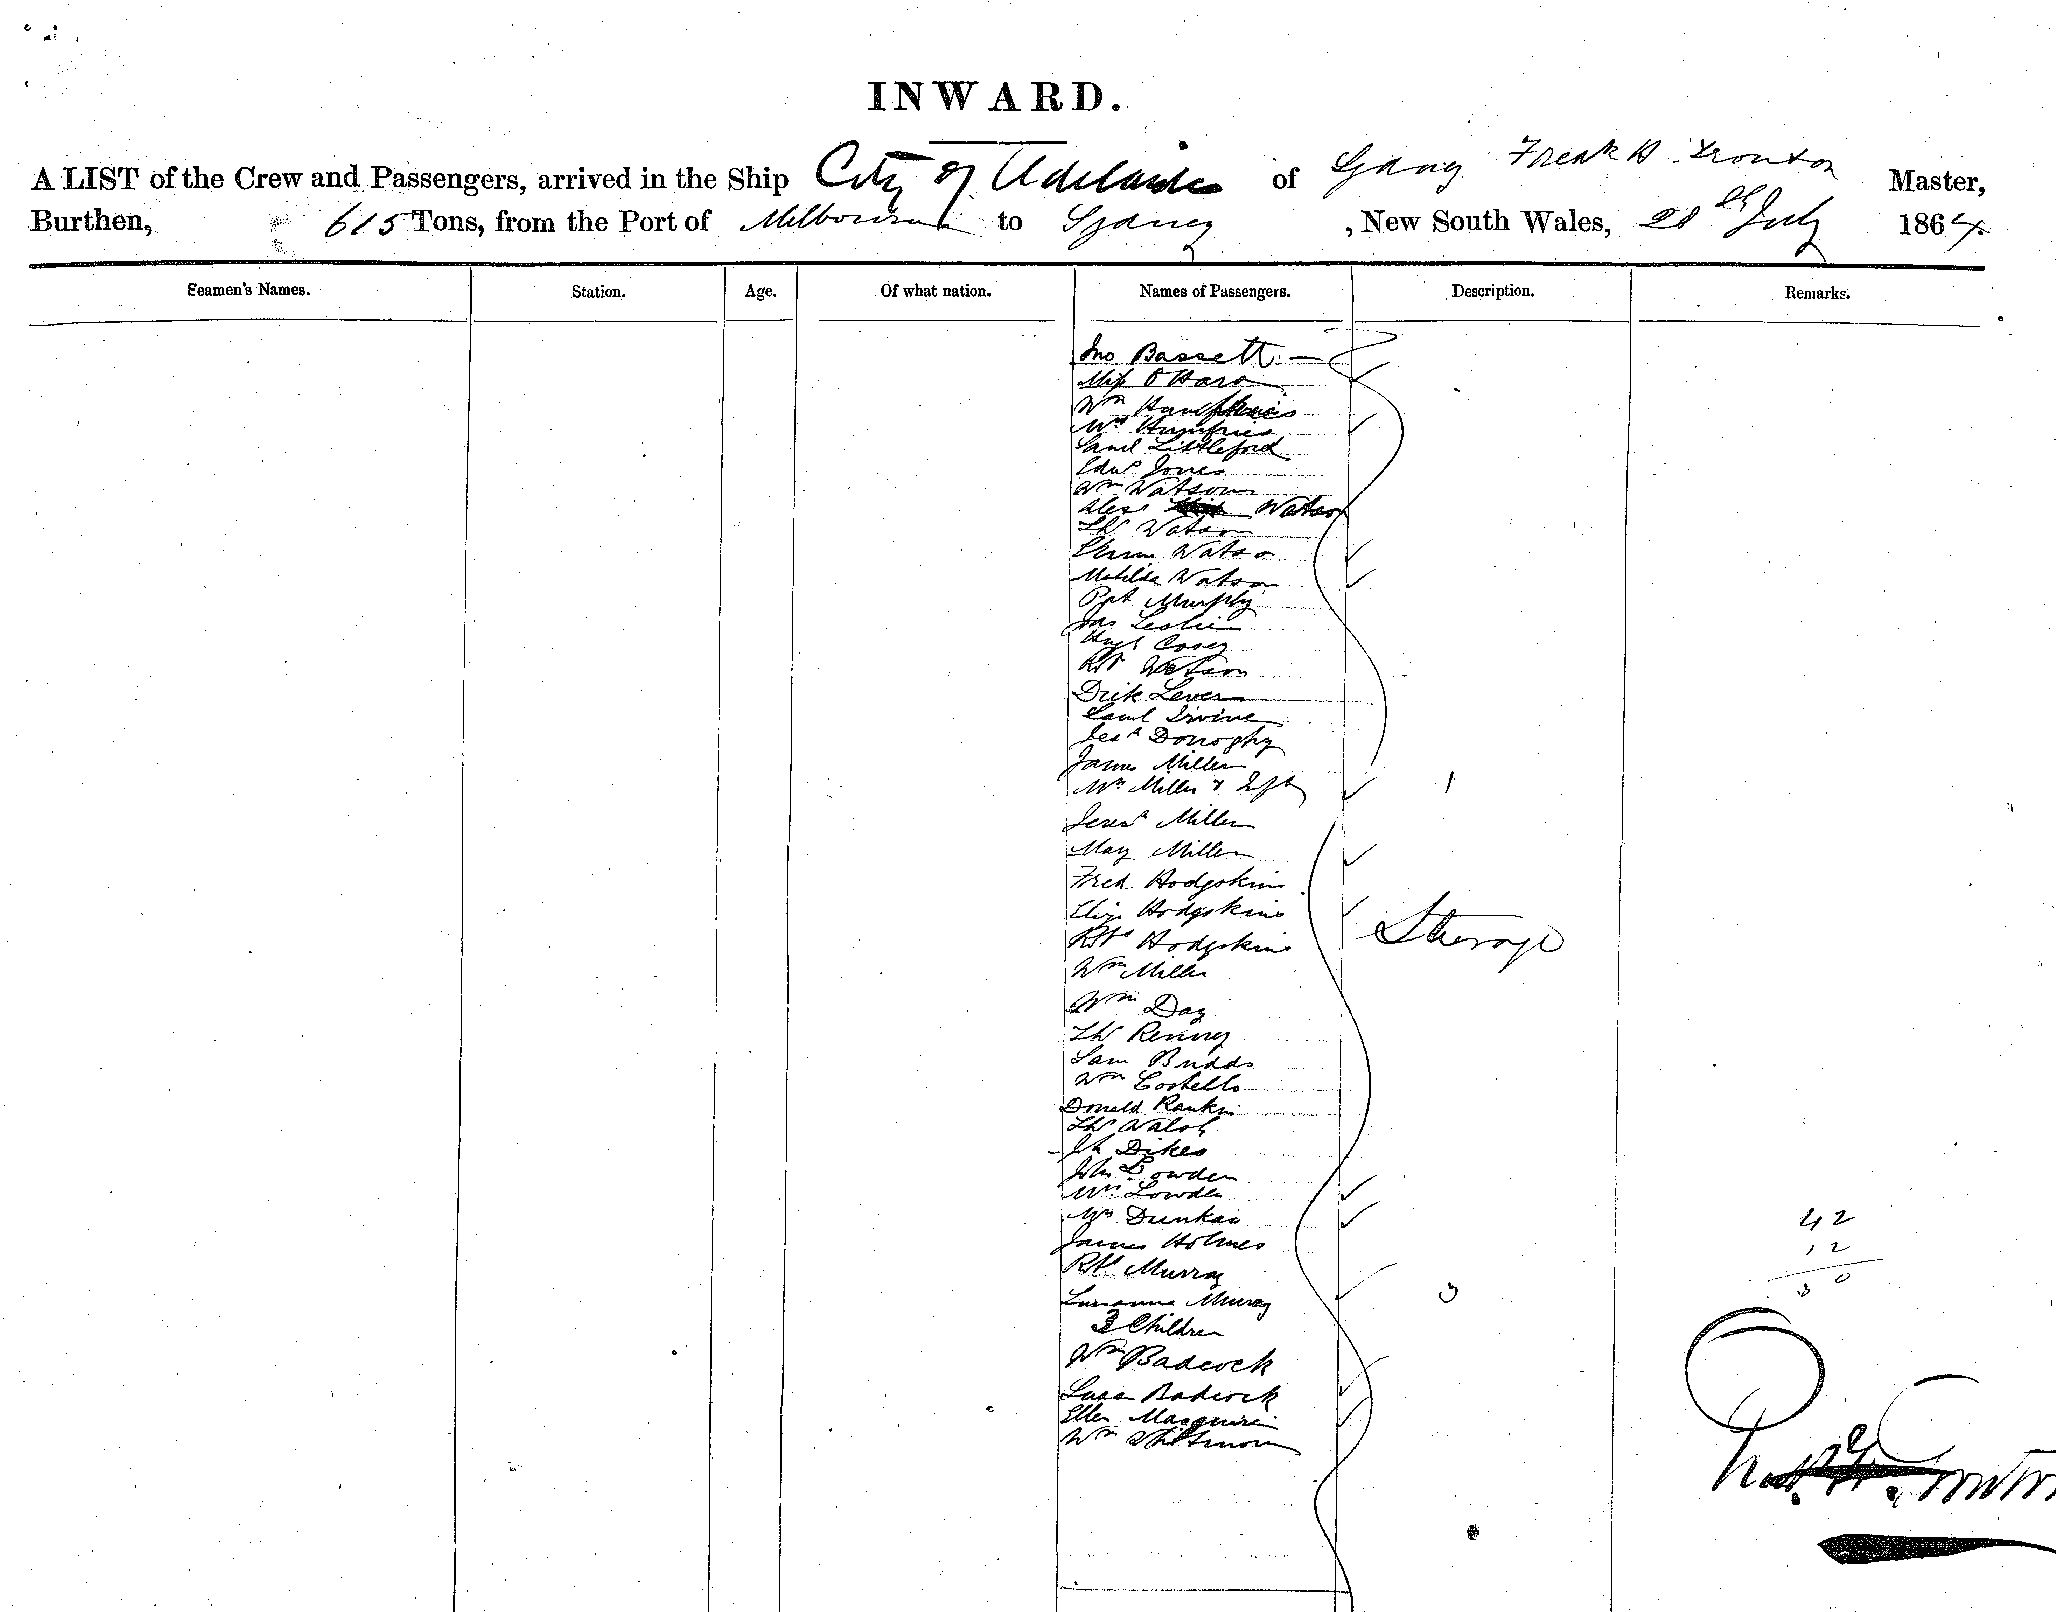 INWARD.
A LIST of the Crew and Passengers, arrived in the Ship City of Adelaide of Sydney Fredk H. Trouton Master,
Burthen, 615 Tons, from the Port of Melbourne to Sydney, New South Wales, 28th July 1864.
Seamen's Names. Station. Age. Of what nation. Names of Passengers. Description. Remarks.
Jno Bassett
Miss O'Hara
Wm Humphries
Mrs Humfries
Saml Littleford
Edwd Jones
Wm Watson
Alexr Watson
Thos Watson
Watson
Matilda Watson
Pat Murphy
Jas Leslie
Casey
Robt Watson
Dick Lever
Saml Irvine
Donoghy
James Miller
Mrs Miller & Inft 1
Miller
May Miller
Fred Hodgskins
Eliza Hodgskins
Robt Hodgskins
Steerage
Wm Miller
Wm Day
Thos Renney
Sam Budds
Wm Costello
Donald Rankin
Thos Walsh
Dikes
John Lowden
Mrs Lowden
Mrs Dunkan
James Holmes
Robt Murray
Murray 3
3 Children
Wm Badcock
Badcock
Ellen Macquire
Wm Whitmore
42
12
30
Trouton